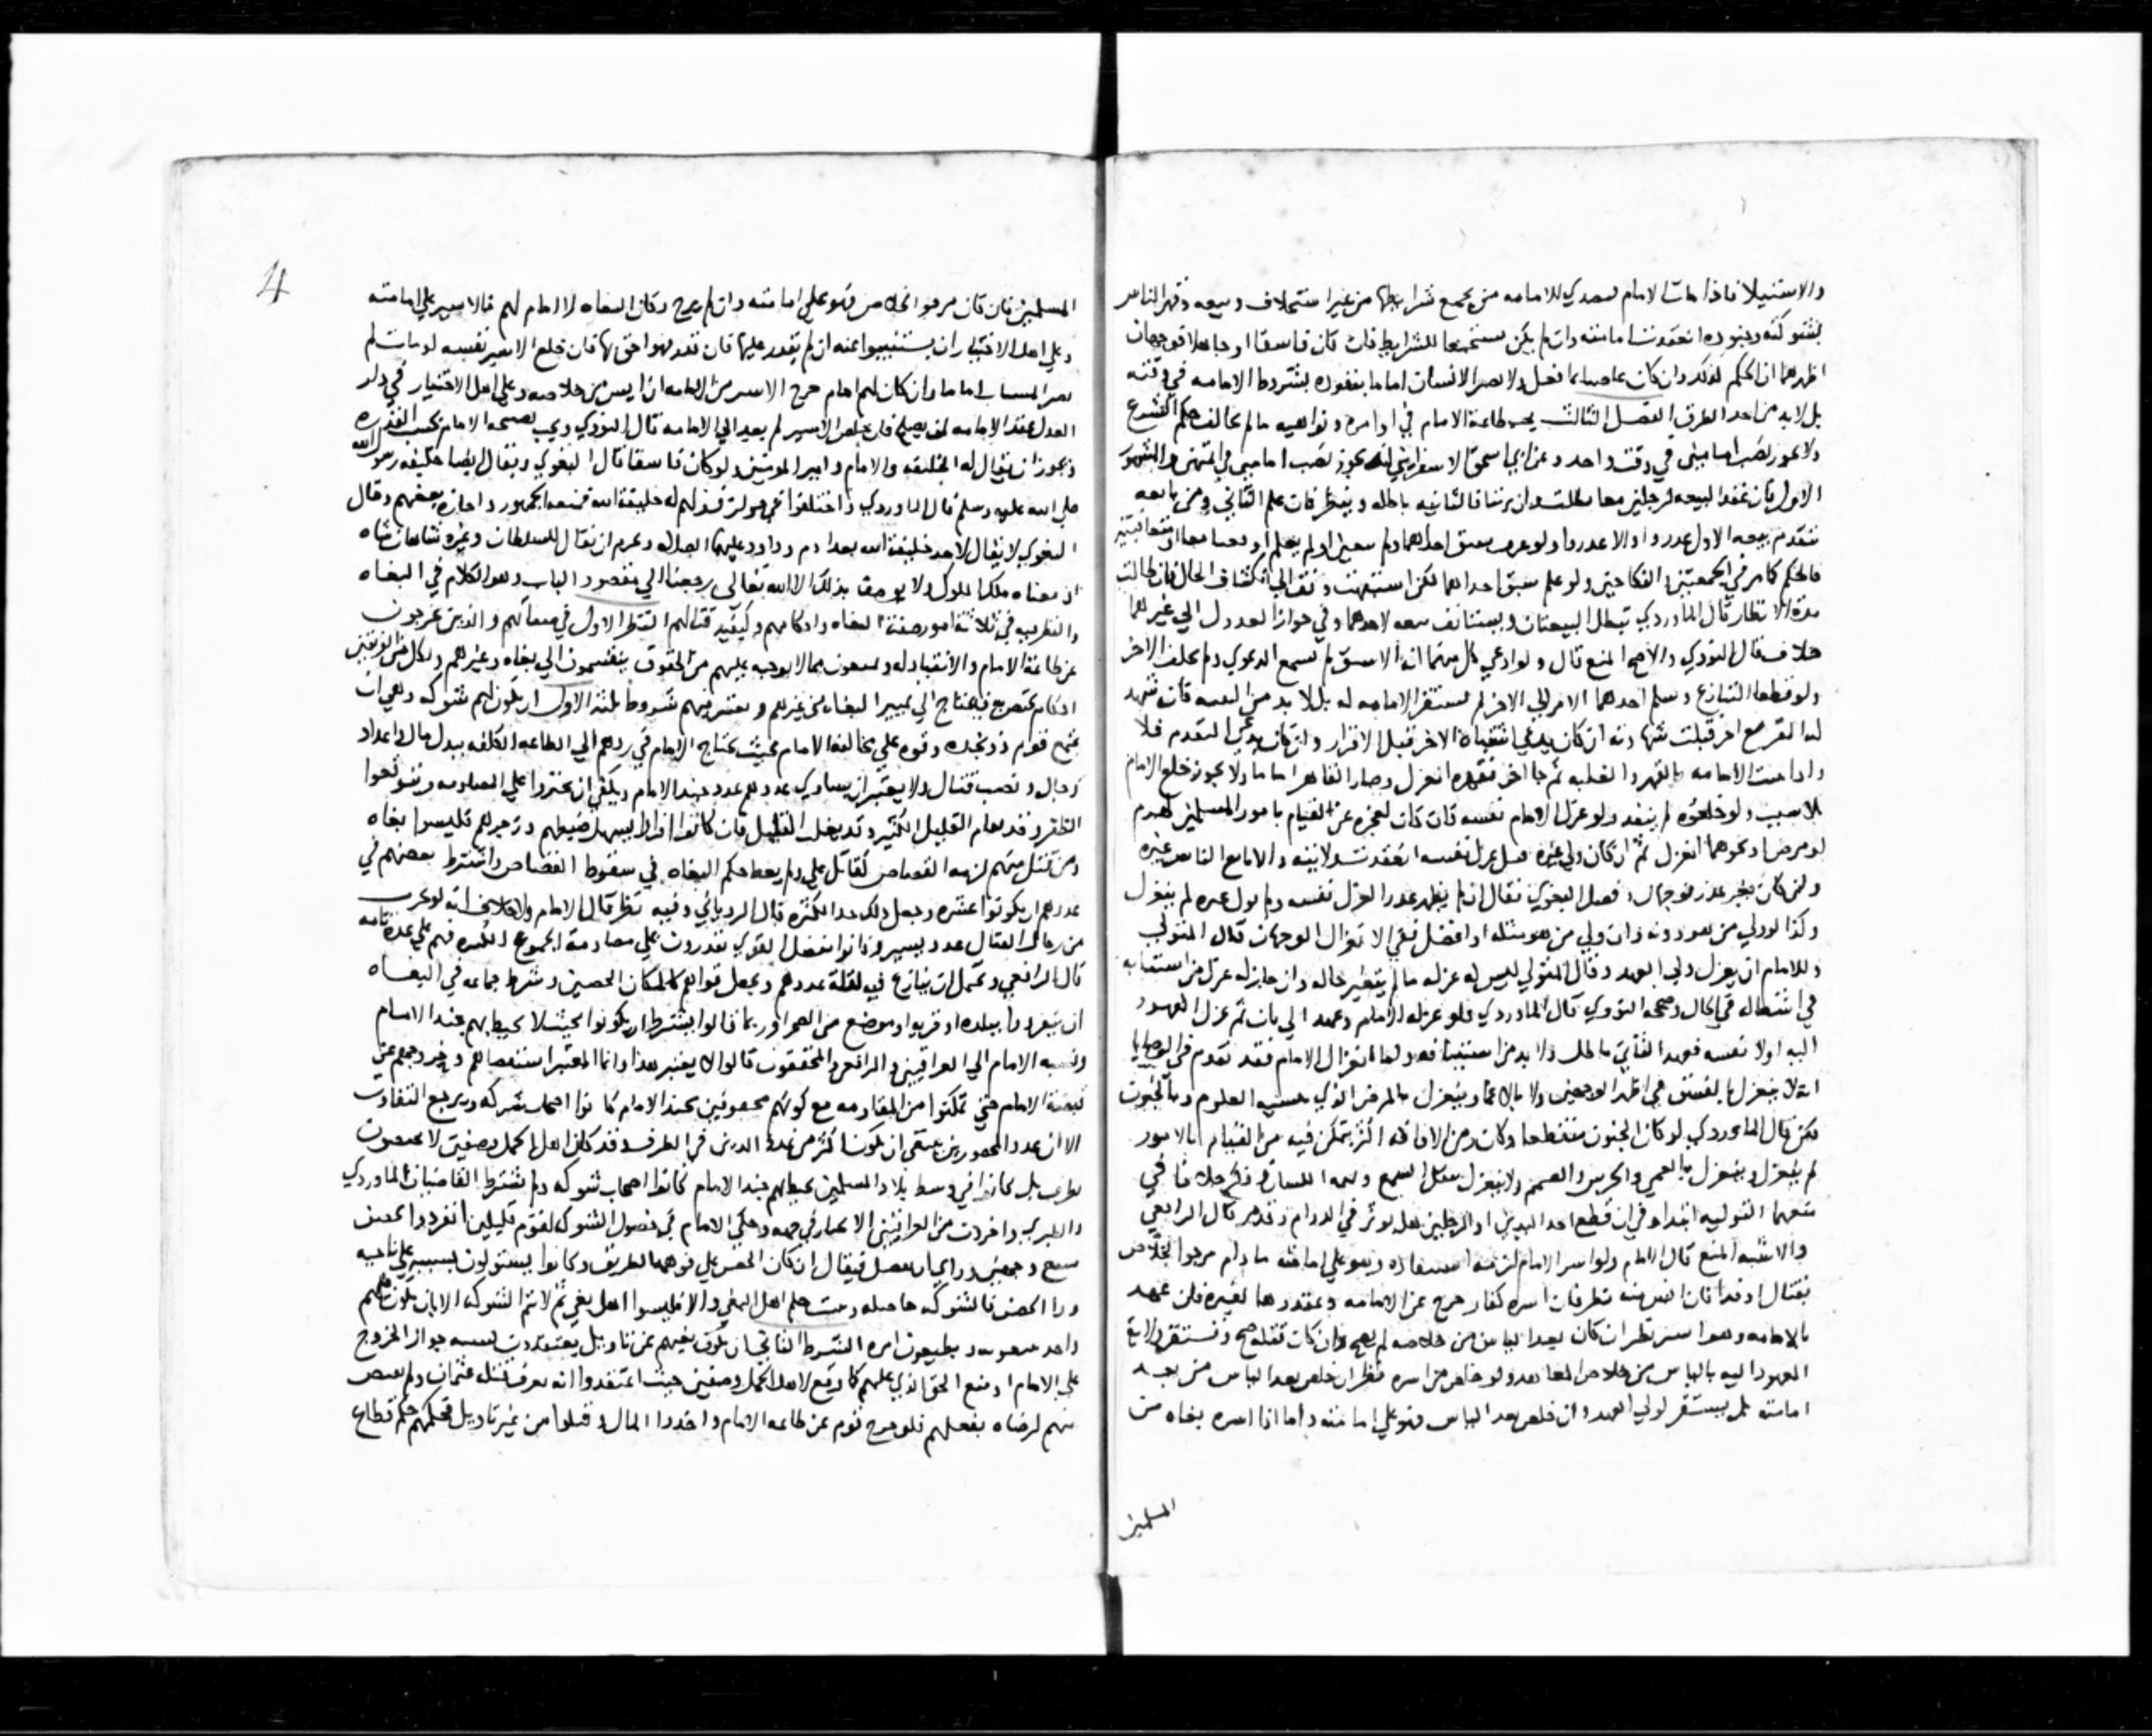 والاستيلا فاذا مات الامام فتصدي للامامه من يجمع شرايطها من غير استخلاف وبيعه وقهر الناس
بشوكته وجنوده انعقدت امامته وان لم يكن مستجمعا للشرايط فان كان فاسقا او جاهلا فوجهان
اظهرهما ان الحكم كذلك وان كان عاصيا بما فعل ولا يصير الانسان اماما بتفرده بشروط الامامه في وقته
بل لا بد من احد الطرق الفصل الثالث يجب طاعة الامام في اوامره ونواهيه ما لم يخالف حكم الشرع
ولا يجوز نصب امامين في وقت واحد وعن ابي اسحق الاسفرايني انه يجوز نصب امامين في
الاول فان عقد البيعه لرجلين معا بطلت وان ترتبا فالثانيه باطله وينظر فان علم الثاني ومن بايعه
تقدم بيعه الاول عزروا والا عذروا ولو عرف سبق احدهما ولم يتعين او لم يعلم اوقعا معا او متعاقبتين
فالحكم كما مر في الجمعتين والنكاحين ولو علم سبق احداهما لكن اشتبهت وقف الي انكشاف الحال فان طالت
مدة الانتظار قال الماوردي تبطل البيعتان ويستانف بيعه لاحدهما وفي جواز العدول الي غيرهما
خلاف قال النووي والاصح المنع قال ولو ادعي كل منهما انه الاسبق لم تسمع الدعوي ولم يحلف الاخر
ولو قطعا التنازع وسلم احدهما الامر الي الاخر لم تستقر الامامه له بل لا بد من البينه فان شهد
له المقر مع اخر قبلت شهادته ان كان يدعي اشتباه الامر قبل الاقرار وان كان يدعي التقدم فلا
واذا ثبتت الامامه بالقهر والغلبه ثم جا اخر فقهره انعزل وصار القاهر اماما ولا يجوز خلع الامام
بلا سبب ولو خلعوه لم ينفذ ولو عزل الامام نفسه فان كان لعجزه عن القيام بامور المسلمين لهرم
او مرض او نحوهما انعزل ثم ان كان ولي غيره قبل عزل نفسه انعقدت ولايته والا بايع الناس غيره
وان كان بغير عذر فوجهان وفصل البغوي فقال ان لم يظهر عذر العزل نفسه ولم يول غيره لم ينعزل
وكذا لو ولي من هو دونه وان ولي من هو مثله او افضل ففي الانعزال الوجهان قال المتولي
وللامام ان يعزل ولي العهد وقال المتولي ليس له عزله ما لم يتغير حاله وان جاز له عزل من استنابه
في اشغاله في الحال وصححه النووي قال الماوردي فلو عزله الامام وعهد الي ثان ثم عزل المعهود
اليه اولا نفسه فعهد الثاني باطل ولا بد من استينافه وهل الانعزال الامام فقد تقدم في الوصايا
انه لا ينعزل بالفسق في اظهر الوجهين ولا بالاغما وينعزل بالمرض الذي ينسيه العلوم وبالجنون
لكن قال الماوردي لو كان الجنون متقطعا وكان زمن الافاقه اكثر يتمكن فيه من القيام بالامور
لم ينعزل وينعزل بالعمي والخرس والصمم ولا ينعزل بثقل السمع وتمتمه اللسان وذكر خلافا في
منعهما التوليه ابتدا وفي ان قطع احد اليدين او الرجلين هل يوثر في الدوام وقدمه قال الرافعي
والاشبه المنع قال الامام ولو اسر الامام لزمه استنقاذه وهو علي امامته ما دام مرجو الخلاص
بقتال او فدا فان ايس منه نظر فان اسره كفار خرج عن الامامه وعقدوها لغيره فان عهد
بالامامه وهو اسير نظر ان كان بعد الياس من خلاصه لم يصح وان كان قبله صح وتستقر ولاية
المعهود اليه بالياس من خلاص العاهد ولو خلص من اسره نظر ان خلص بعد الياس من تعد
امامته بل يستقر لولي العهد وان خلص بعد الياس فهو علي امامته واما اذا اسره بغاه من
المسلمين
4
المسلمين فان كان مرجو الخلاص فهو علي امامته وان لم يرج وكان البغاه لا امام لهم فالاسير علي امامته
وعلي اهل الاختيار ان يستنيبوا عنه ان لم يقدر عليها فان قدر فهو احق بها فان خلع الاسير نفسه او مات لم
يصر المستناب اماما وان كان لهم امام خرج الاسير من الامامه ان ايس من خلاصه وعلي اهل الاختيار في دار
العدل عقد الامامه لمن يصلح فان خلص الاسير لم يعد الي الامامه قال النووي ويجب نصيحة الامام بحسب القدره
ويجوز ان يقال له الخليفه والامام وامير المومنين ولو كان فاسقا قال البغوي ويقال ايضا خليفه رسول الله
صلي الله عليه وسلم قال الماوردي واختلفوا في جواز قولهم له خليفة الله فمنعه الجمهور واجازه بعضهم وقال
البغوي لا يقال لاحد خليفة الله بعد ادم وداود عليهما السلام ويحرم ان يقال للسلطان وغيره شاهان شاه
اذ معناه ملك الملوك ولا يوصف بذلك الا الله تعالى رجعنا الي مقصود الباب وهو الكلام في البغاه
والنظر فيه في ثلاثة امور صفة البغاه واحكامهم وكيفيه قتالهم النظر الاول في صفاتهم والذين يخرجون
عن طاعة الامام والانقياد له ويمتنعون مما لا يوجبه عليهم من الحقوق ينقسمون الي بغاه وغيرهم ولكل من الفرقتين
احكام تختص به فيحتاج الي تمييز البغاه من غيرهم وتعتبر فيهم شروط ثلثه الاول ان يكون لهم شوكه وهي ان
يجتمع قوم ذو نجده وقوه علي مخالفه الامام بحيث يحتاج الامام في ردهم الي الطاعه الي كلفه ببذل مال واعداد
رجال ونصب قتال ولا يعتبر ان يساوي عددهم عدد جند الامام ويكفي ان يجتزوا علي المقاومه ويتوقعوا
الظفر وقد يقاوم القليل الكثير وقد يغلب القليل فان كانوا افرادا يسهل ضبطهم وزجرهم فليسوا بغاه
ومن قتل منهم لزمه القصاص كقاتل علي ولم يعط حكم البغاه في سقوط القصاص واشترط بعضهم في
عددهم ان يكونوا عشره وجعل ذلك حد الكثره قال الروياني وفيه نظر قال الامام ولا خلاف انه لو تحزب
من رجال القتال عدد يسير وكانوا بفضل القوي يقدرون علي مصادمة الجموع الكثيره فهم علي عدة تامه
قال الرافعي ويحتمل ان ينازع فيه لقلة عددهم ويجعل قواهم كالمكان الحصين وشرط جماعه في البغاه
ان ينفردوا ببلده او قريه او موضع من الصحرا وربما قالوا يشترط ان يكونوا بحيث لا يحيط بهم جند الامام
ونسبه الامام الي العراقيين والرافعي والمحققون قالوا لا يعتبر هذا وانما المعتبر استعصاهم وخروجهم عن
قبضة الامام حتي تمكنوا من المقاومه مع كونهم محفوفين بجند الامام كانوا اصحاب شوكه ويرجع التفاوت
الا ان عدد المحصورين ينبغي ان يكون اكثر من عدد الذين في الطرف وقد كان اهل الجمل وصفين لا يجمعون
بطرف بل كانوا في وسط بلاد المسلمين يحيط بهم جند الامام وكانوا اصحاب شوكه ولم يشترط القاضيان الماوردي
والطبري واخرون من العراقيين الانحياز في جهه وحكي الامام في حصول الشوكه لقوم قليلين انفردوا بحصن
منيع وجهين وراي ان يفصل فيقال ان كان الحصن علي فوهه الطريق وكانوا يستولون بسببه علي ناحيه
ورا الحصن فالشوكه حاصله وثبت حكم اهل البغي والا فليسوا اهل بغي ثم لا تتم الشوكه الا بان يكون فيهم
واحد يتبعونه ويطيعون امره الشرط الثاني ان يكون بغيهم عن تاويل يعتقدون بسببه جواز الخروج
علي الامام او منع الحق الذي عليهم كما وقع لاهل الجمل وصفين حيث اعتقدوا انه يعرف قتله عثمان ولم يقتص
منهم لرضاه بفعلهم فلو خرج قوم عن طاعه الامام واخذوا المال وقتلوا من غير تاويل فحكمهم حكم قطاع